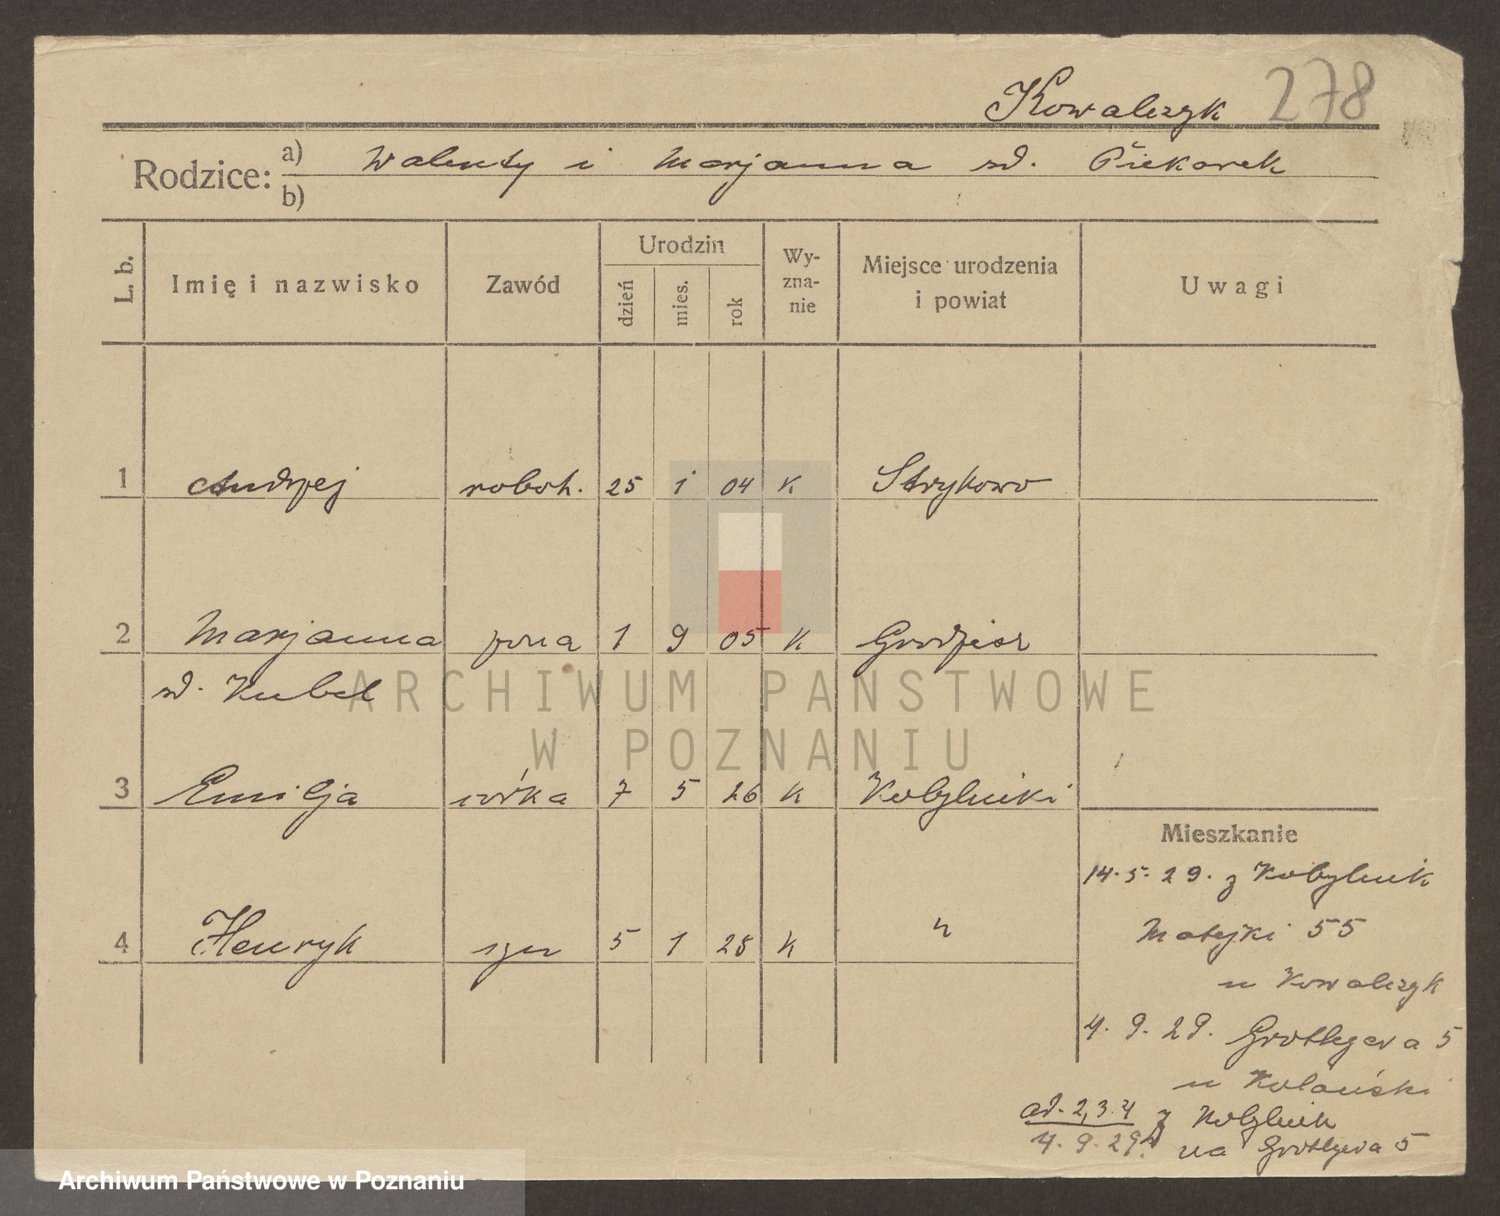 Kowalczyk 278
Rodzice: a) Walenty i Marjanna zd. Piekarek
b)
L. b. Imię i nazwisko Zawód Urodzin dzień mies. rok Wy-zna-nie Miejsce urodzenia i powiat Uwagi
1 Andrzej roboh. 25 1 04 K Strykowo
2 Marjanna żona 1 9 05 K Grodzisz
zd. Kubel
ARCHIWUM PAŃSTWOWE
W POZNANIU
3 Emilja córka 7 5 26 K Kobylniki
Mieszkanie
14.5.29. z Kobylnik
4 Henryk syn 5 1 28 K "
Matejki 55
u Kowalczyk
4.9.29. Grottgera 5
u Kolański
ad. 2,3.4 z Kobylnik
4.9.29 na Grottgera 5
Archiwum Państwowe w Poznaniu